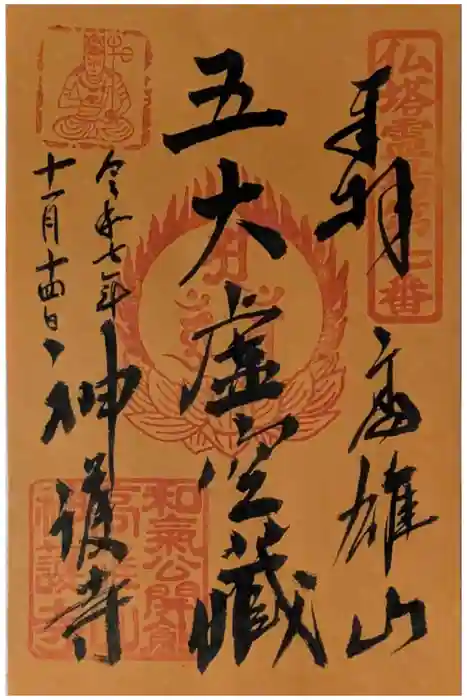 奉拝
高雄山
五大虚空藏
令和七年
十一月十四日
神護寺
仏塔霊
番
和氣公開創
高雄山
神護寺